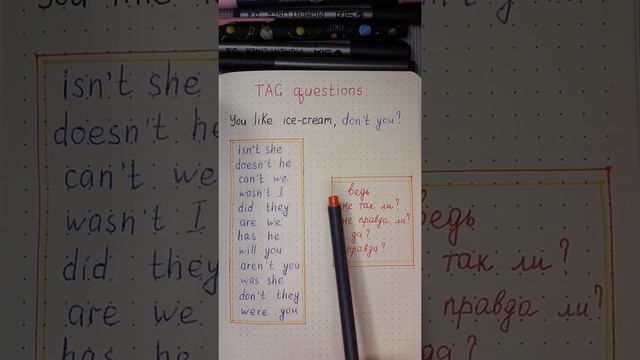 TAG questions
You like ice-cream, don't you?
isn't she
doesn't he
can't we
wasn't I
did they
are we
has he
will you
aren't you
was she
don't they
were you
ведь
не так ли?
не правда ли?
да?
правда?